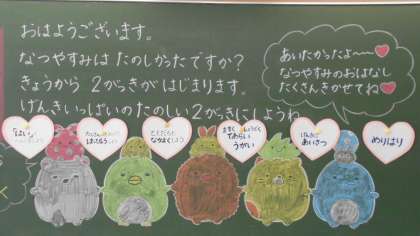 おはようございます。
なつやすみは たのしかったですか?
きょうから 2がっきが はじまります。
げんきいっぱいの たのしい2がっきにしようね
あいたかったよ〜〜
なつやすみのおはなし
たくさんきかせてね
なかよく
てあらい
うがい
あいさつ
めりはり